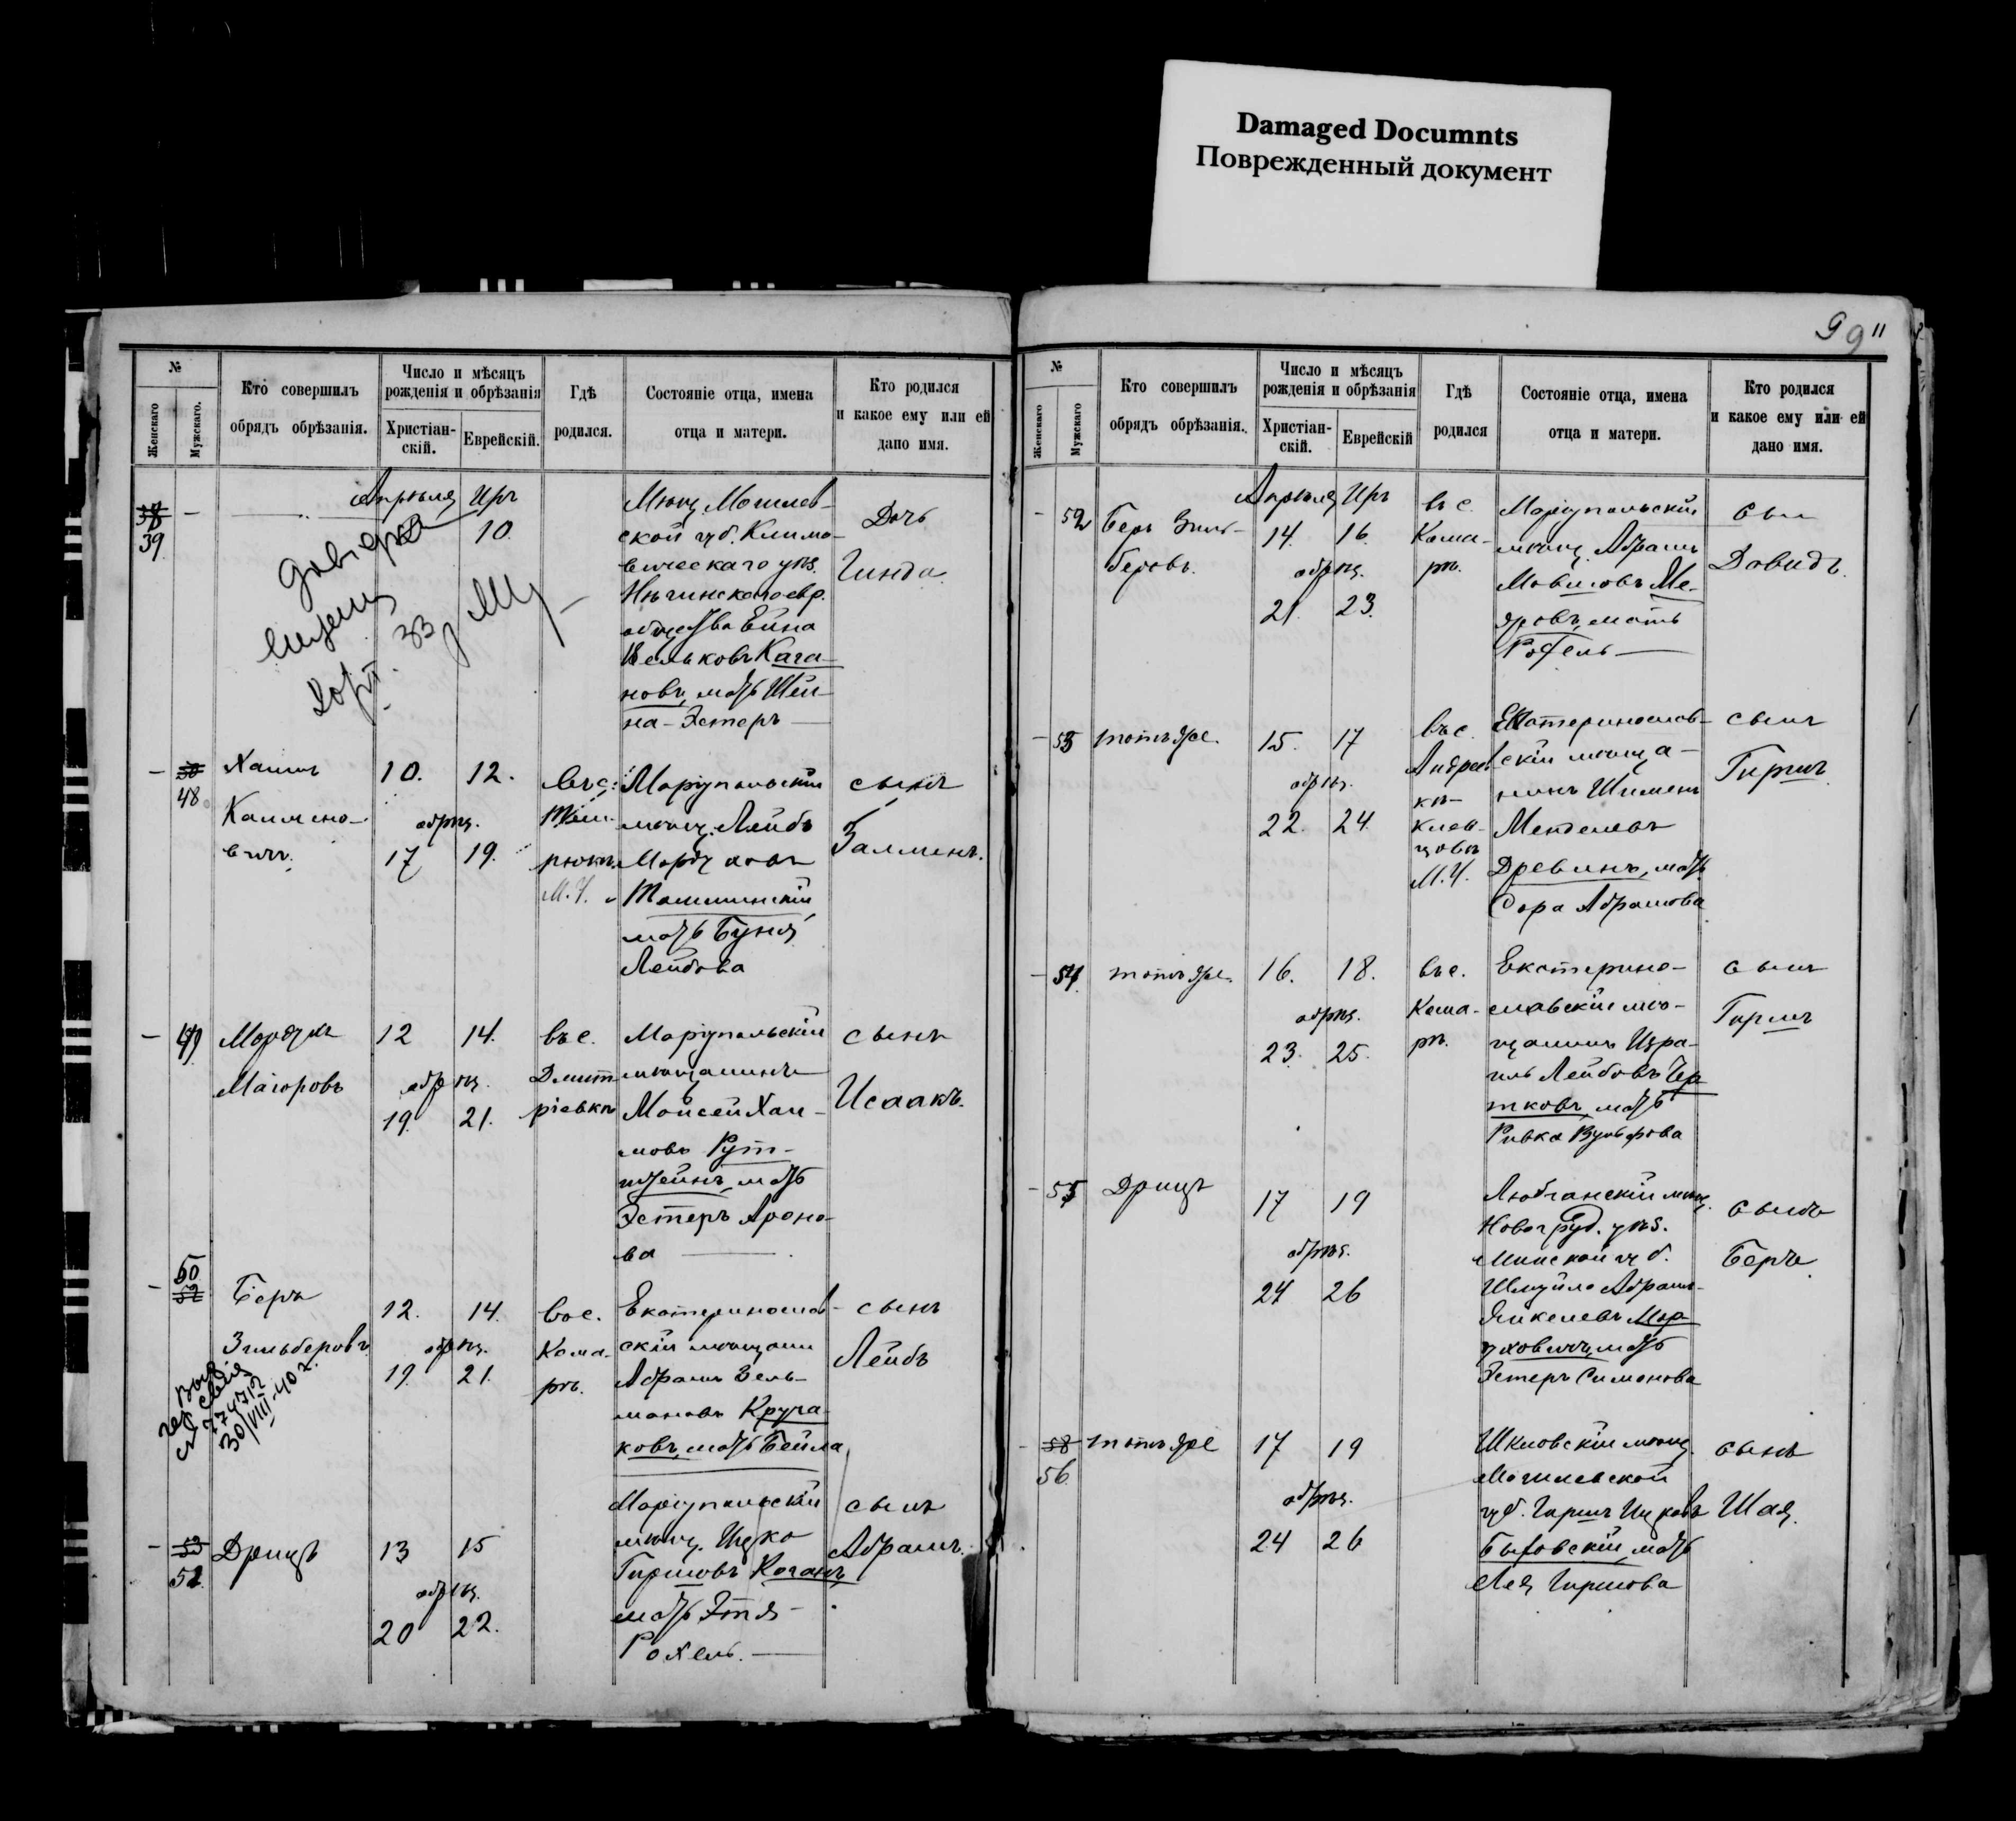 Damaged Documnts
Поврежденный документ
99
№
Женскаго
Мужскаго.
Кто совершилъ
обрядъ обрѣзанія.
Число и мѣсяцъ
рожденія и обрѣзанія
Христіан-
скій.
Еврейскій.
Гдѣ
родился.
Состояніе отца, имена
отца и матери.
Кто родился
и какое ему или ей
дано имя.
38
39
—
Апрѣля Иръ
10.
Мѣщ. Могилев-
ской губ. Климо-
вическаго уѣз.
евр.
общества
Кага-
новъ, мать Шей-
на-Эстеръ
Дочь
Гинда
48
Хаимъ
Каимено-
вичъ.
10. 12.
обрѣз.
17 19.
въ с.
М.У.
Маріупольскій
мѣщ. Лейбъ
Мордуховъ
мать Буня
Лейбова
сынъ
Залменъ.
49
Мордухъ
Маіоровъ
12 14.
обрѣз.
19. 21.
въ с.
Дмит-
ріевкѣ
Маріупольскій
мѣщанинъ
Моисей Хаи-
мовъ Рут-
штейнъ, мать
Эстеръ Ароно-
ва
сынъ
Исаакъ.
50
52
Беръ
Зильберовъ
77472
30/VIII-40 г.
12. 14.
обрѣз.
19. 21.
въ с.
Кома-
рѣ.
Екатеринослав-
скій мѣщани
Абрамъ Зель-
мановъ Круча-
ковъ, мать Бейла
сынъ
Лейбъ
53
51
Дрицъ
13 15
обрѣз.
20 22.
Маріупольскій
мѣщ. Ицко
Гиршовъ Каганъ,
мать Этя-
Рохель.
сынъ
Абрамъ.
№
Женскаго
Мужскаго
Кто совершилъ
обрядъ обрѣзанія.
Число и мѣсяцъ
рожденія и обрѣзанія
Христіан-
скій.
Еврейскій
Гдѣ
родился
Состояніе отца, имена
отца и матери.
Кто родился
и какое ему или ей
дано имя.
52
Беръ Зиль-
беровъ.
Апрѣля Иръ
14. 16.
обрѣз.
21 23.
въ с.
Кома-
рѣ.
Маріупольскій
мѣщ. Абрамъ
Мовшовъ Ме-
еровъ, мать
Рохель
сын
Давидъ.
53
тотъ же.
15. 17
обрѣз.
22. 24.
въ с.
Андреев-
кѣ-
М.У.
Екатеринослав-
скій мѣща-
нинъ Шименъ
Менделевъ
Древинъ, мать
Сора Абрамова
сынъ
Гиршъ
54
тотъ же.
16. 18.
обрѣз.
23. 25.
въ с.
Кома-
рѣ.
Екатерино-
славскій мѣ-
щанинъ Изра-
иль Лейбовъ Гер-
тковъ, мать
Ривка Вульфова
сынъ
Гиршъ
55
Дрицъ
17 19
обрѣз.
24 26
Любчанскій мѣщ.
Новогруд. уѣз.
Минской губ.
Шмуйло Абрамъ-
Янкелевъ Мор-
духовичъ, мать
Эстеръ Симонова
сынъ
Беръ
58
56
тотъ же
17 19
обрѣз.
24 26
Шкловскій мѣщ.
Могилевской
губ. Гиршъ Ицковъ
Быховскій, мать
Лея Гиршова
сынъ
Шая.